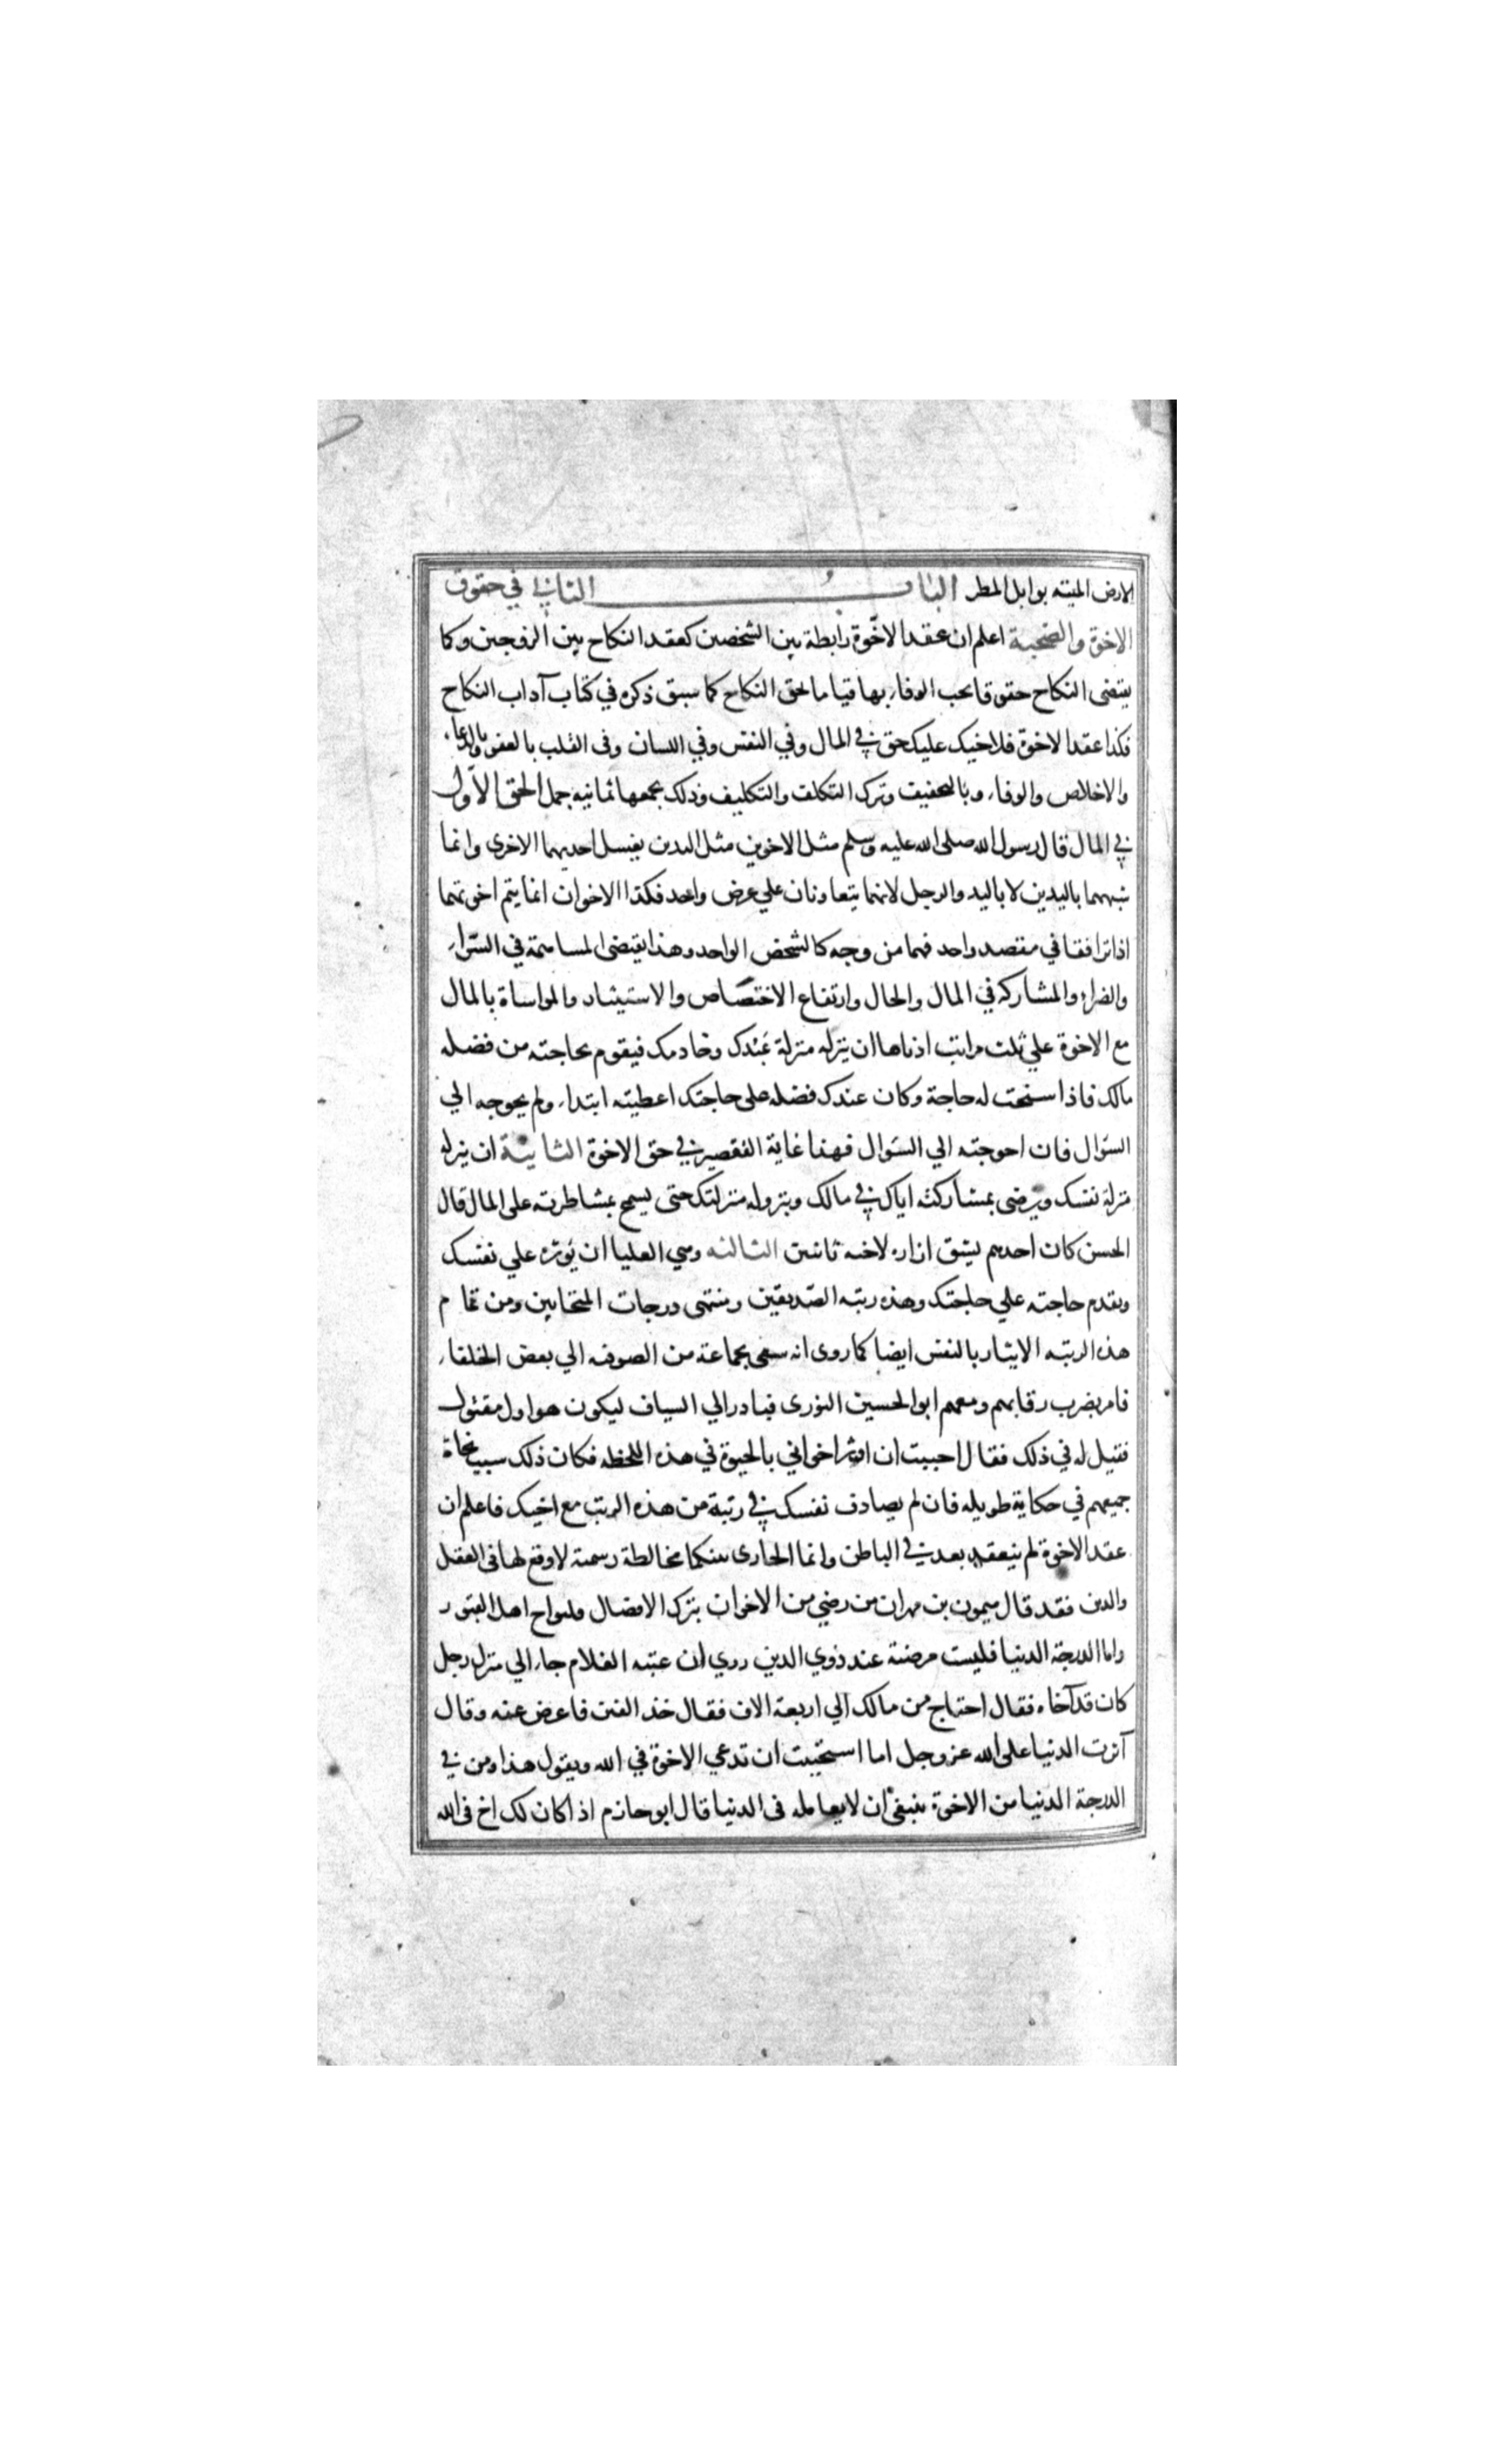 الارض الميته بوابل المطر الباب الثاني في حقوق
الاخوة والصحبة اعلم ان عقد الاخوّة رابطة بين الشخصين كعقد النكاح بين الزوجين وكما
يقتضي النكاح حقوقا يجب الوفاء بها قياما بحق النكاح كما سبق ذكره في كتاب آداب النكاح
فكذا عقد الاخوة فلاخيك عليك حق في المال وفي النفس وفي اللسان وفي القلب بالعفو والدعاء
والاخلاص والوفاء وبالتخفيف وترك التكلف والتكليف وذلك يجمعها ثمانيه جمل الحق الاول
في المال قال رسول الله صلى الله عليه وسلم مثل الاخوين مثل اليدين يغسل احديهما الاخرى وانما
شبههما باليدين لا باليد والرجل لانهما يتعاونان علي غرض واحد فكذا الاخوان انما يتم اخوتهما
اذا ترافقا في مقصد واحد فهما من وجه كالشخص الواحد وهذا يقتضي المساهمة في السّراء
والضراء والمشاركه في المال والحال وارتفاع الاختصاص والاستيثار والمواساة بالمال
مع الاخوة علي ثلث مراتب ادناها ان ينزله منزلة عَبْدك وخادمك فيقوم بحاجته من فضله
مالك فاذا سنحت له حاجة وكان عندك فضله على حاجتك اعطيته ابتداء ولم يحوجه الي
السّوال فان احوجته الي السّوال فهذا غاية التقصير في حق الاخوة الثانية ان ينزله
منزلة نفسك ويرضى بمشاركته اياك في مالك ونزوله منزلتك حتى يسمح بمشاطرته على المال قال
الحسن كان احدهم يشق ازاره لاخيه باثنين الثالثه وهي العليا ان يوثره علي نفسك
ويقدم حاجته علي حاجتك وهذه رتبه الصّديقين ومنتهى درجات المتحابين ومن تمام
هذه الرتبه الايثار بالنفس ايضا كما روى انه سعى بجماعة من الصوفه الي بعض الخلفاء
فامر بضرب رقابهم ومعهم ابو الحسين النورى فبادر الي السياف ليكون هو اول مقتول
فقيل له في ذلك فقال احببت ان اوثر اخواني بالحيوة في هذه اللحظه فكان ذلك سبب نجاة
جميعهم في حكاية طويله فان لم يصادف نفسك في رتبة من هذه الرتب مع اخيك فاعلم ان
عقد الاخوة لم ينعقد بعد في الباطن وانما الجارى بينكما مخالطة رسمية لا وقع لها في العقل
والدين فقد قال ميمون بن مهران من رضي من الاخوان بترك الافضال فليواخ اهل القبور
واما الدرجة الدنيا فليست مرضية عند ذوي الدين روي ان عتبه الغلام جاء الي منزل رجل
كان قد آخاه فقال احتاج من مالك الي اربعة الاف فقال خذ الفين فاعرض عنه وقال
آثرت الدنيا على الله عز وجل اما استحييت ان تدعي الاخوة في الله ويقول هذا ومن في
الدرجة الدنيا من الاخوة ينبغي ان لا يعامله في الدنيا قال ابو حازم اذا كان لك اخ في الله